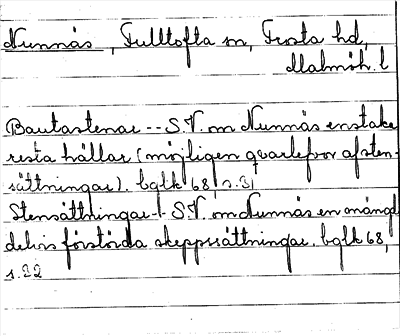 Nunnäs, Fulltofta sn, Frosta hd,
Malmöh. l
Bautastenar -- S.V. om Nunnäs enstaka
resta hällar (möjligen qvarlefvor af sten-
sättningar). bglk 68, s. 31
Stensättningar -- S.V. om Nunnäs en mängd
delvis förstörda skeppssättningar. bglk 68,
s. 22